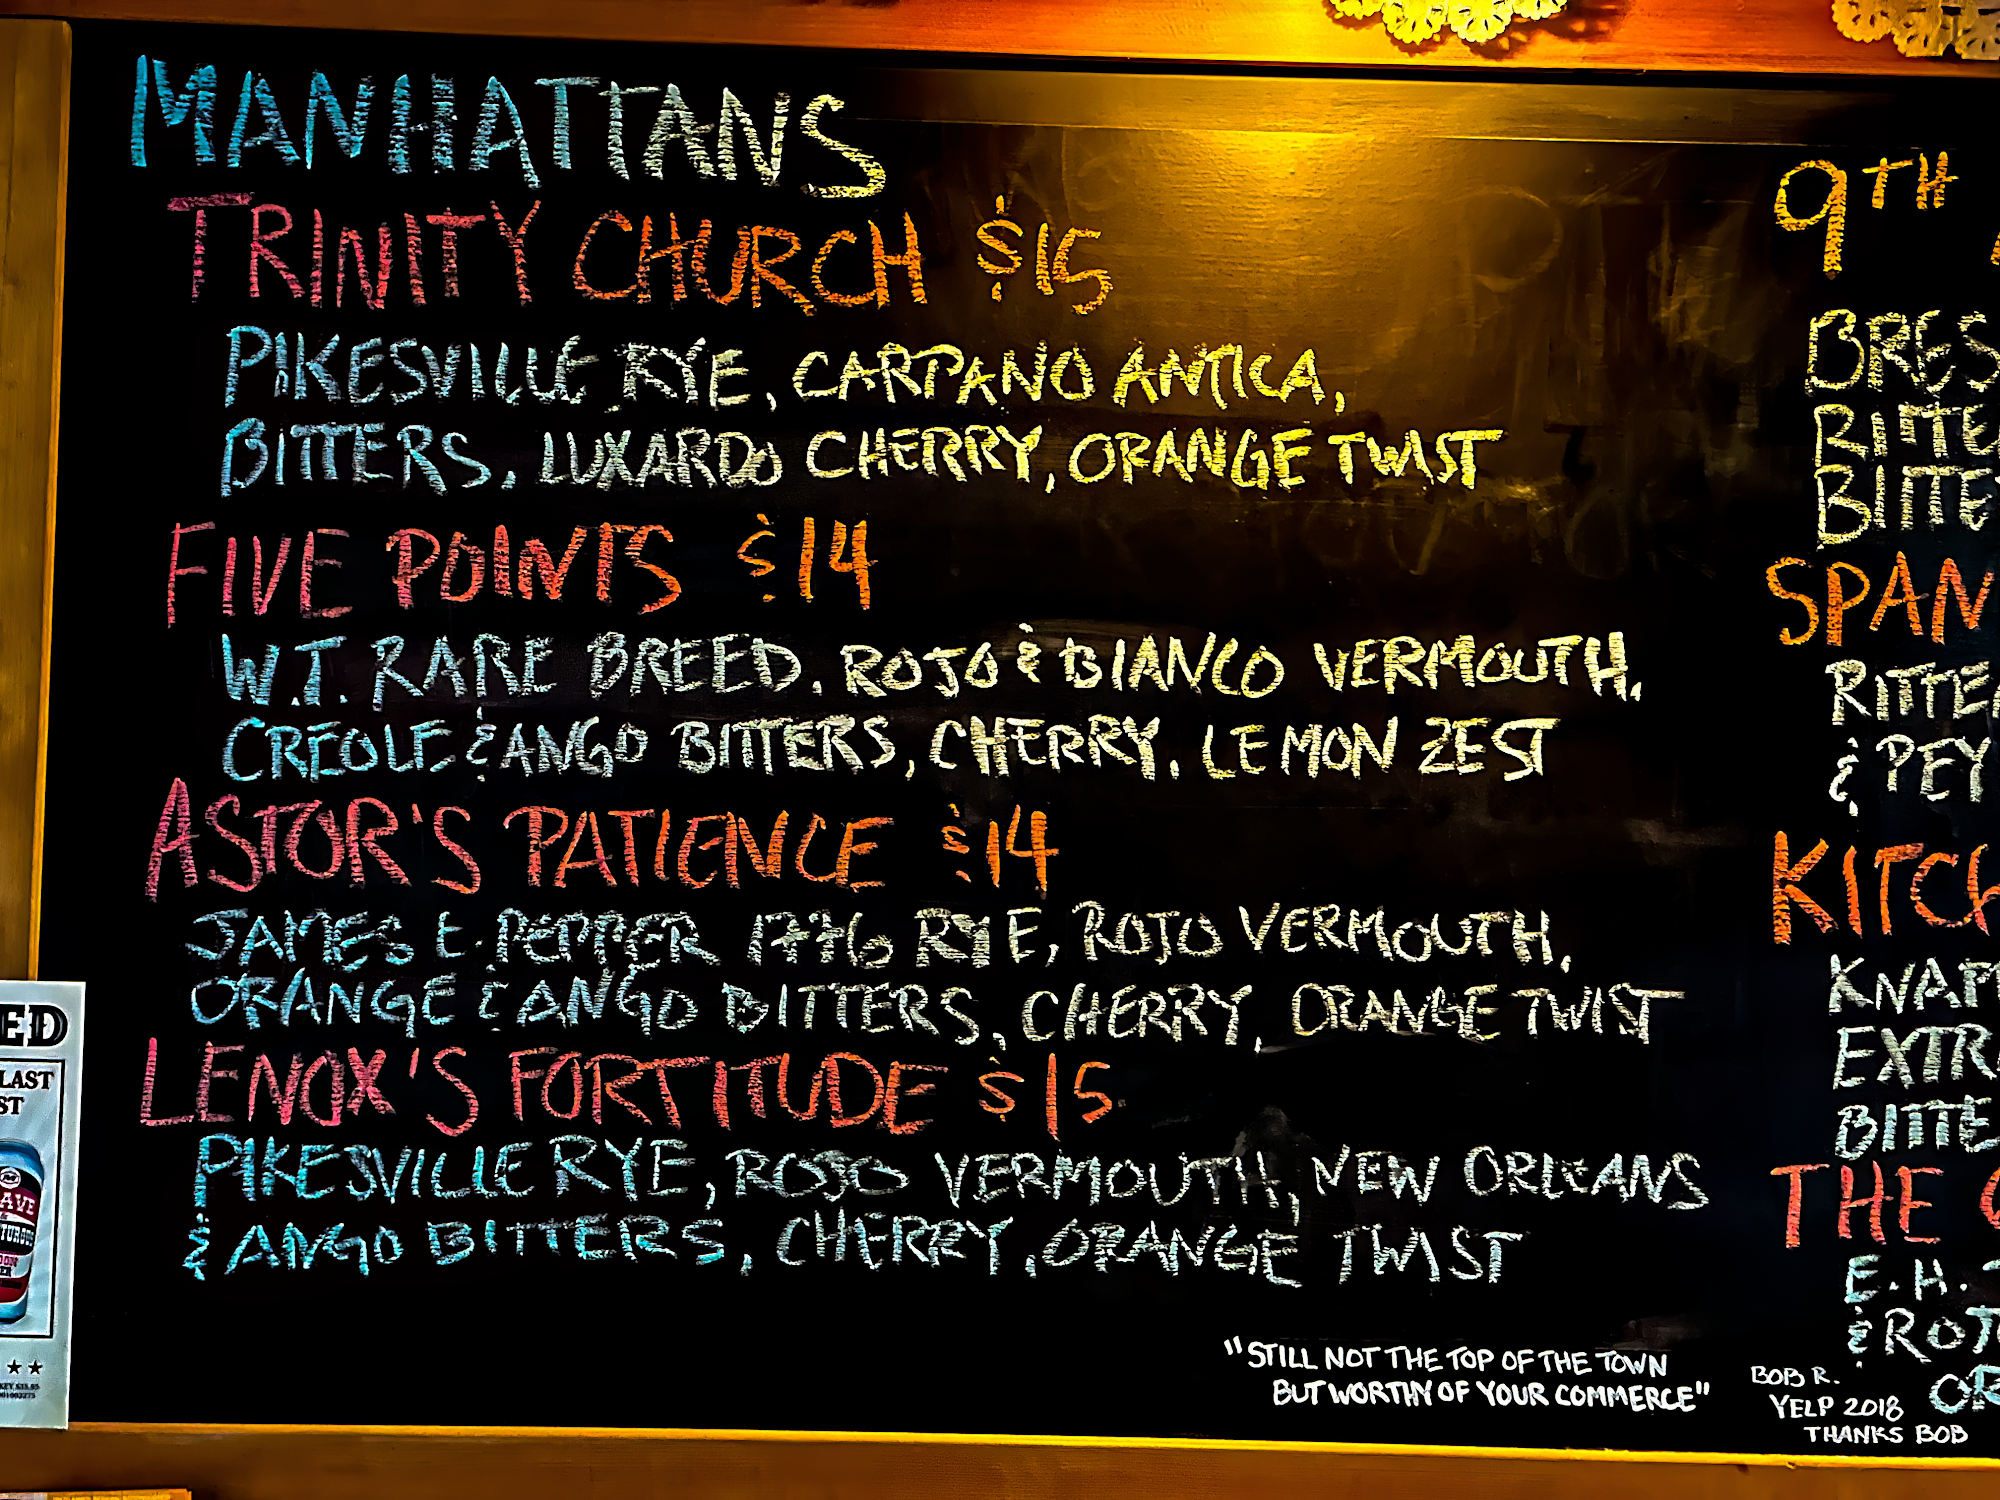 MANHATTANS
TRINITY CHURCH $15
PIKESVILLE RYE, CARPANO ANTICA,
BITTERS, LUXARDO CHERRY, ORANGE TWIST
FIVE POINTS $14
W.T. RARE BREED, ROJO & BIANCO VERMOUTH,
CREOLE & ANGO BITTERS, CHERRY, LEMON ZEST
ASTOR'S PATIENCE $14
JAMES E. PEPPER 1776 RYE, ROJO VERMOUTH,
ORANGE & ANGO BITTERS, CHERRY, ORANGE TWIST
LENOX'S FORTITUDE $15
PIKESVILLE RYE, ROJO VERMOUTH, NEW ORLEANS
& ANGO BITTERS, CHERRY, ORANGE TWIST
"STILL NOT THE TOP OF THE TOWN
BUT WORTHY OF YOUR COMMERCE"
BOB R.
YELP 2018
THANKS BOB
9TH
BRES
BITTE
BITTE
SPAN
RITTE
& PEY
KITCH
KNAP
EXTR
BITTE
THE
E.H.
& ROJ
OR
ED
LAST
ST
AVE